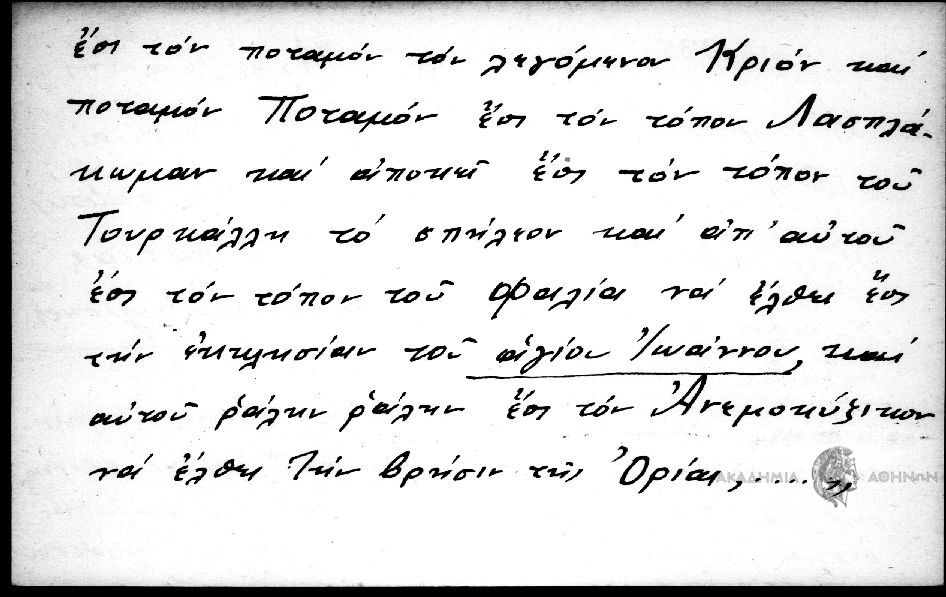 ἕσι τόν ποταμόν τόν λεγόμενον Κριόν καί
ποταμόν Ποταμόν ἕσι τόν τόπον Λασπλά-
κωμαν καί ἀποκεῖ ἕσι τόν τόπον τοῦ
Τουρκάλλη τό σπήλεον καί ἀπ' αὐτοῦ
ἕσι τόν τόπον τοῦ Φαλία νά ἔλθη ἕσι
τήν ἐκκλησίαν τοῦ ἁγίου Ἰωάννου, καί
αὐτοῦ ῥάλην ῥάλην ἕσι τόν Ἀνεμοκύξικον
νά ἔλθη τήν βρήσιν τῆς Ὀρίας, .... „
ΑΚΑΔΗΜΙΑ ΑΘΗΝΩΝ